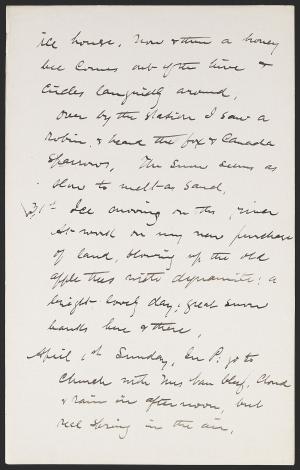 ice house. Now & then a honey
bee comes out of the hive &
circles languidly around.
Over by the station I saw a
robin, & heard the fox & Canada
sparrows. The snow seems as
slow to melt as sand.
31st Ice moving on the river
At work on my new purchase
of land, blowing up the old
apple trees with dynamite; a
bright lovely day; great snow
banks here & there.
April 1st Sunday, In P; go to
church with Mrs Van Cloud
& rain in afternoon, but
real Spring in the air.